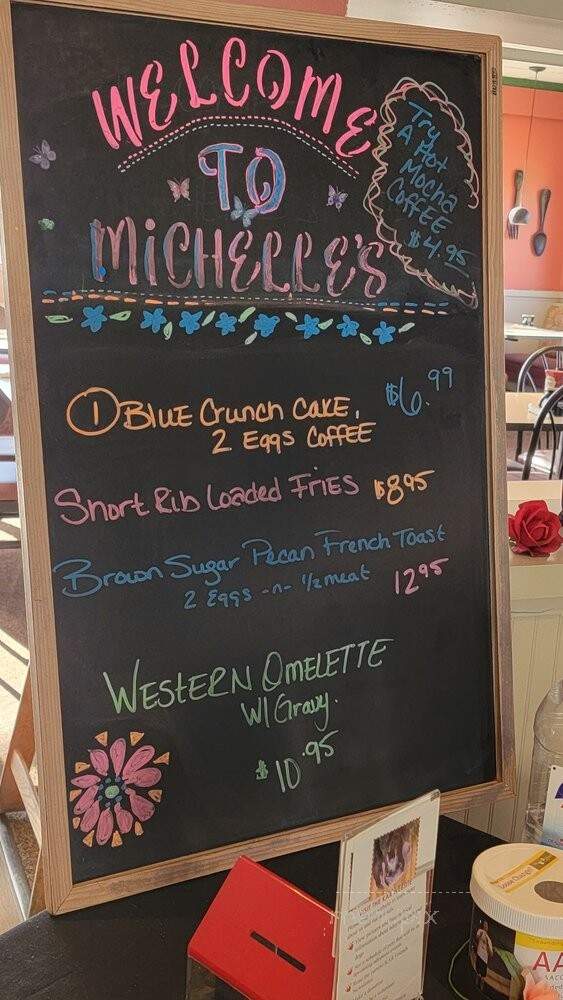 WELCOME
TO
MICHELLE'S
Try
A Hot
Mocha
Coffee
$4.95
1 Blue Crunch Cake,
2 Eggs Coffee
$6.99
Short Rib Loaded Fries $8.95
Brown Sugar Pecan French Toast
2 Eggs -n- 1/2 meat 12.95
WESTERN OMELETTE
W/ Gravy.
$10.95
Loose Change?